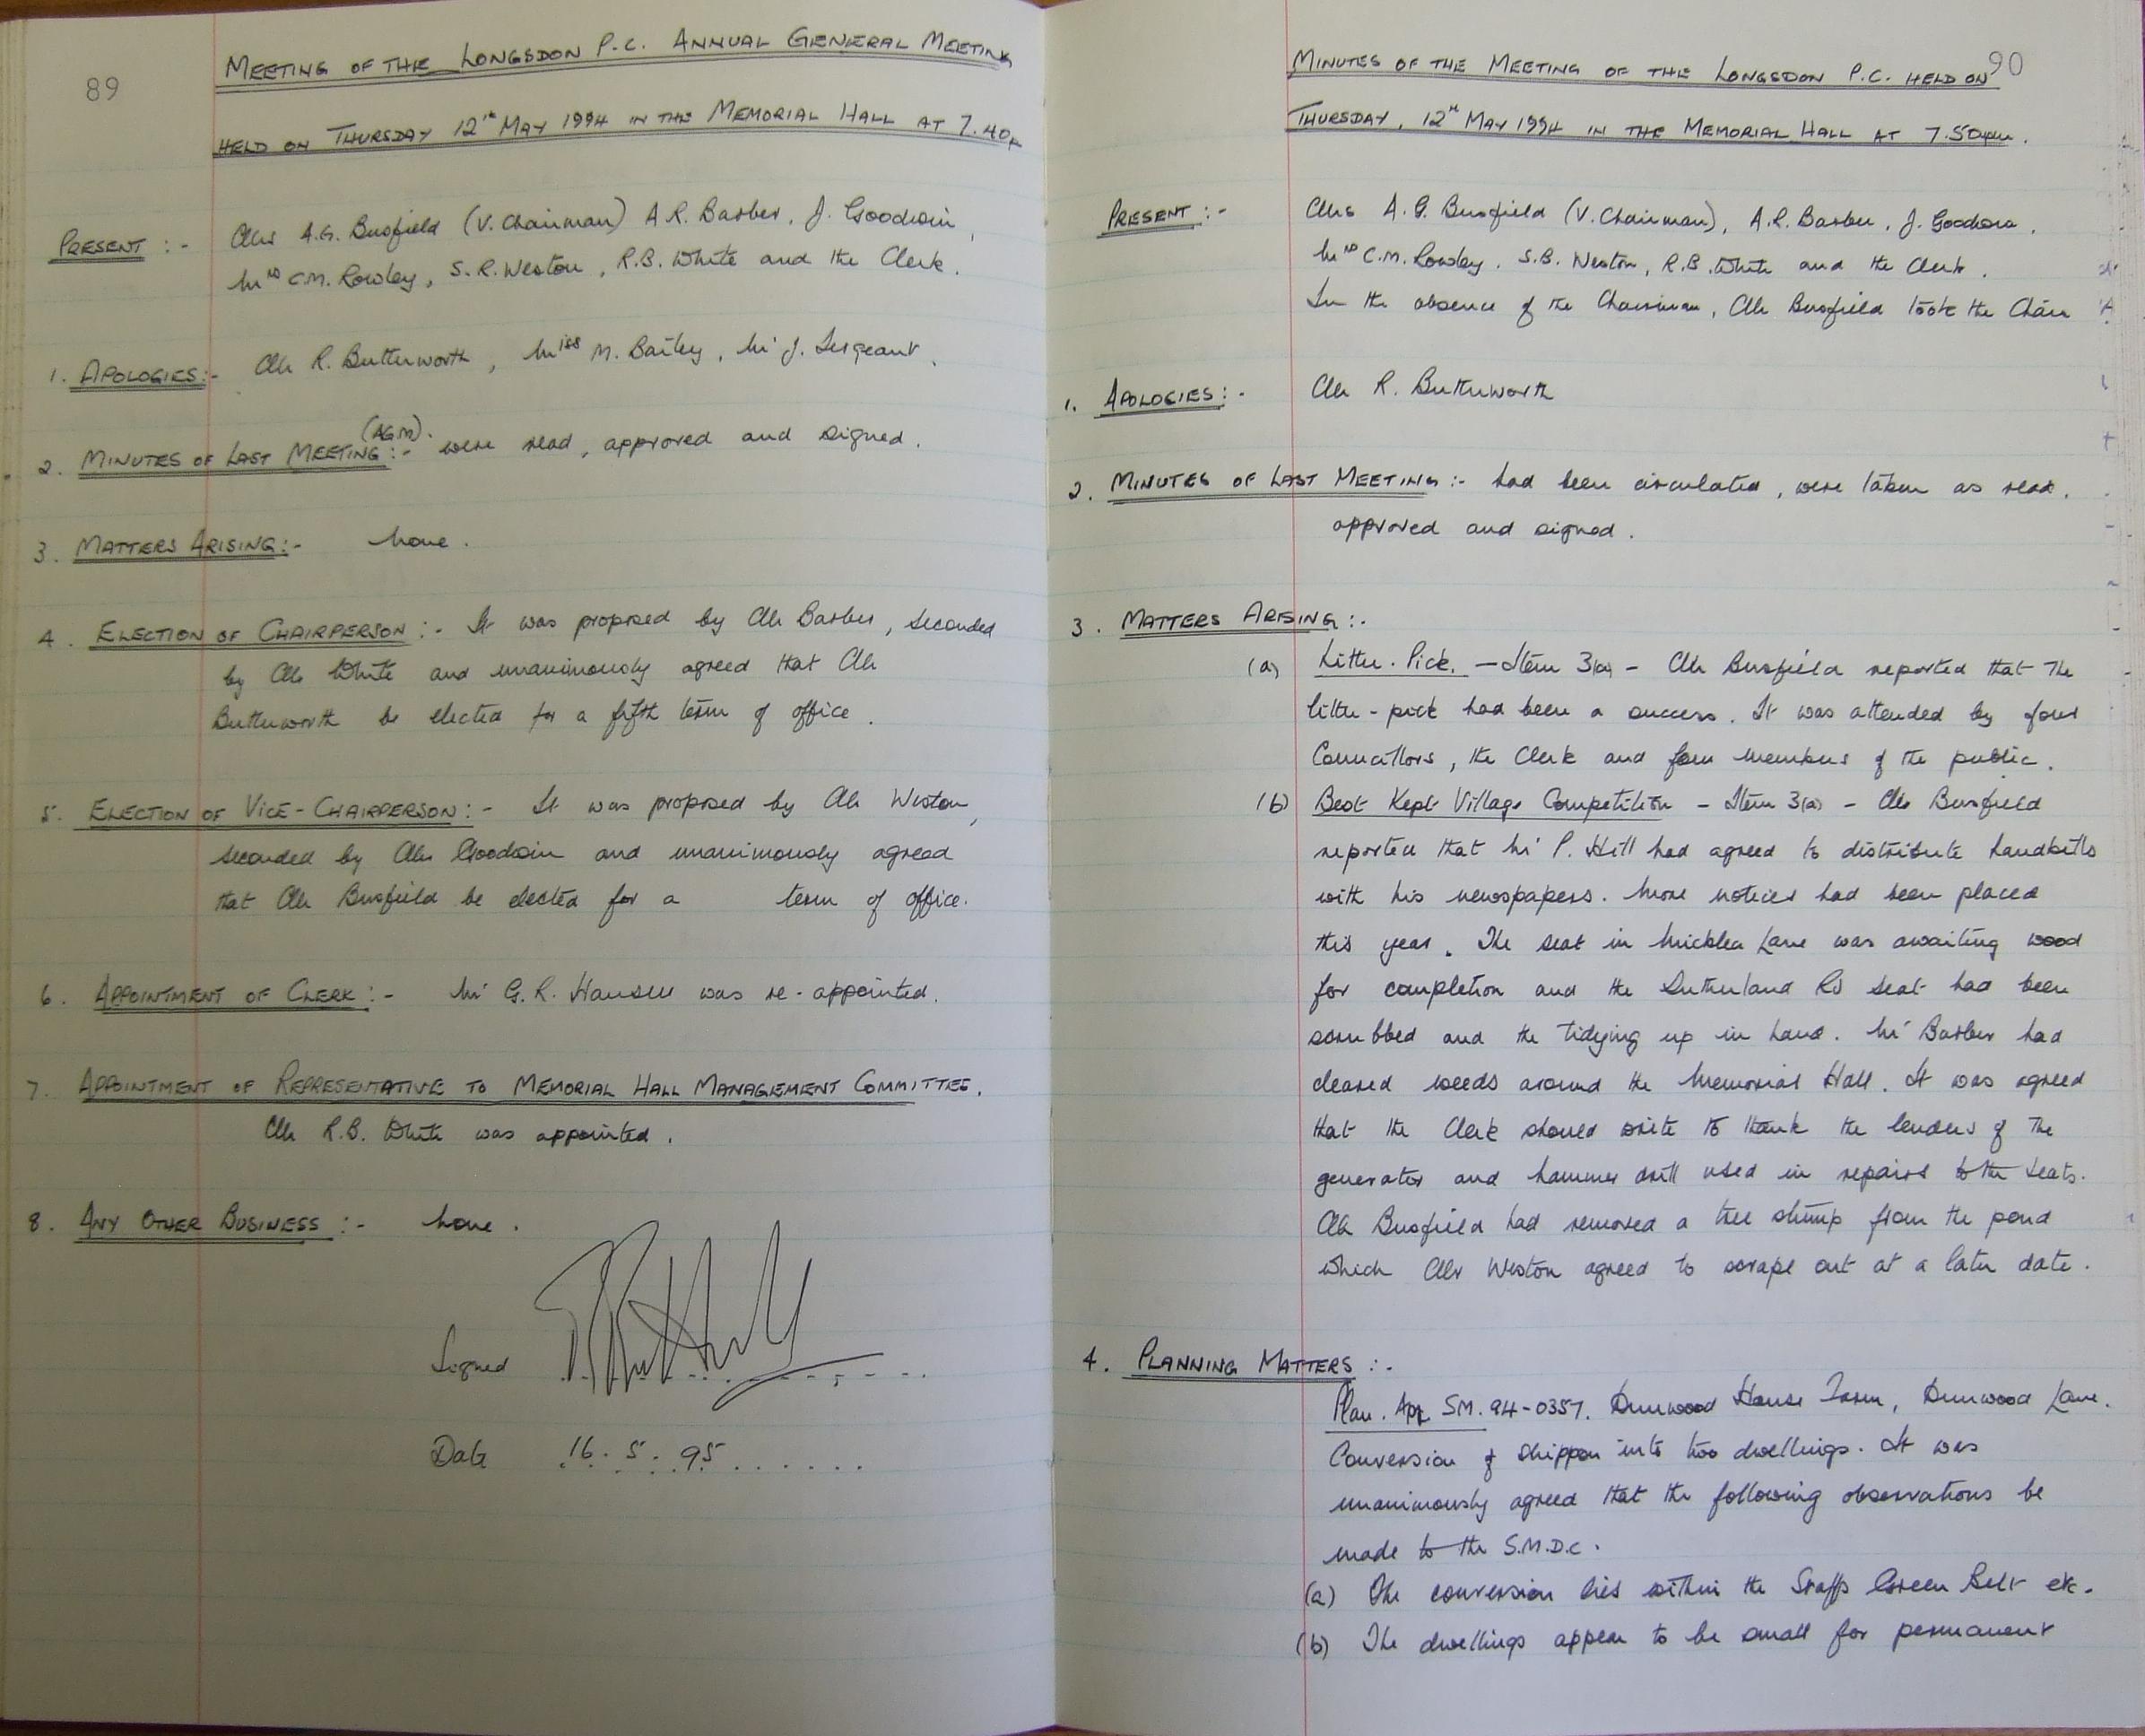 89
MEETING OF THE LONGSDON P.C. ANNUAL GENERAL MEETING
HELD ON THURSDAY 12th MAY 1994 IN THE MEMORIAL HALL AT 7.40p
PRESENT :- Cllrs A.G. Busfield (V. Chairman) A.R. Barber, J. Goodwin,
Mrs C.M. Rowley, S.R. Weston, R.B. White and the Clerk.
1. APOLOGIES:- Cllr R. Butterworth, Miss M. Bailey, Mr J. Sergeant.
(AGM).
2. MINUTES OF LAST MEETING:- were read, approved and signed.
3. MATTERS ARISING:- None.
4. ELECTION OF CHAIRPERSON:- It was proposed by Cllr Barber, seconded
by Cllr White and unanimously agreed that Cllr
Butterworth be elected for a fifth term of office.
5. ELECTION OF VICE-CHAIRPERSON:- It was proposed by Cllr Weston,
seconded by Cllr Goodwin and unanimously agreed
that Cllr Busfield be elected for a term of office.
6. APPOINTMENT OF CLERK:- Mr G.R. was re-appointed.
7. APPOINTMENT OF REPRESENTATIVE TO MEMORIAL HALL MANAGEMENT COMMITTEE.
Cllr R.B. White was appointed.
8. ANY OTHER BUSINESS:- None.
Signed
Date 16.5.95
90
MINUTES OF THE MEETING OF THE LONGSDON P.C. HELD ON
THURSDAY, 12th MAY 1994 IN THE MEMORIAL HALL AT 7.50pm.
PRESENT:- Cllrs A.G. Busfield (V. Chairman), A.R. Barber, J. Goodwin,
Mrs C.M. Rowley, S.B. Weston, R.B. White and the Clerk.
In the absence of the Chairman, Cllr Busfield took the Chair
1. APOLOGIES:- Cllr R. Butterworth
2. MINUTES OF LAST MEETING:- had been circulated, were taken as read,
approved and signed.
3. MATTERS ARISING:-
(a) Litter-Pick. - Item 3(a) - Cllr Busfield reported that the
litter-pick had been a success. It was attended by four
Councillors, the Clerk and four members of the public.
(b) Best Kept Village Competition - Item 3(a) - Cllr Busfield
reported that Mr P. Hill had agreed to distribute handbills
with his newspapers. More notices had been placed
this year. The seat in Micklea Lane was awaiting wood
for completion and the Sutherland Rd seat had been
scrubbed and the tidying up in hand. Mr Barber had
cleared weeds around the Memorial Hall. It was agreed
that the Clerk should write to thank the lenders of the
generator and hammer drill used in repairs to the seats.
Cllr Busfield had removed a tree stump from the pond
which Cllr Weston agreed to scrape out at a later date.
4. PLANNING MATTERS:-
Plan. App. SM.94-0357. Dunwood House Farm, Dunwood Lane.
Conversion of shippon into two dwellings. It was
unanimously agreed that the following observations be
made to the S.M.D.C.
(a) The conversion lies within the Staffs Green Belt etc.
(b) The dwellings appear to be small for permanent